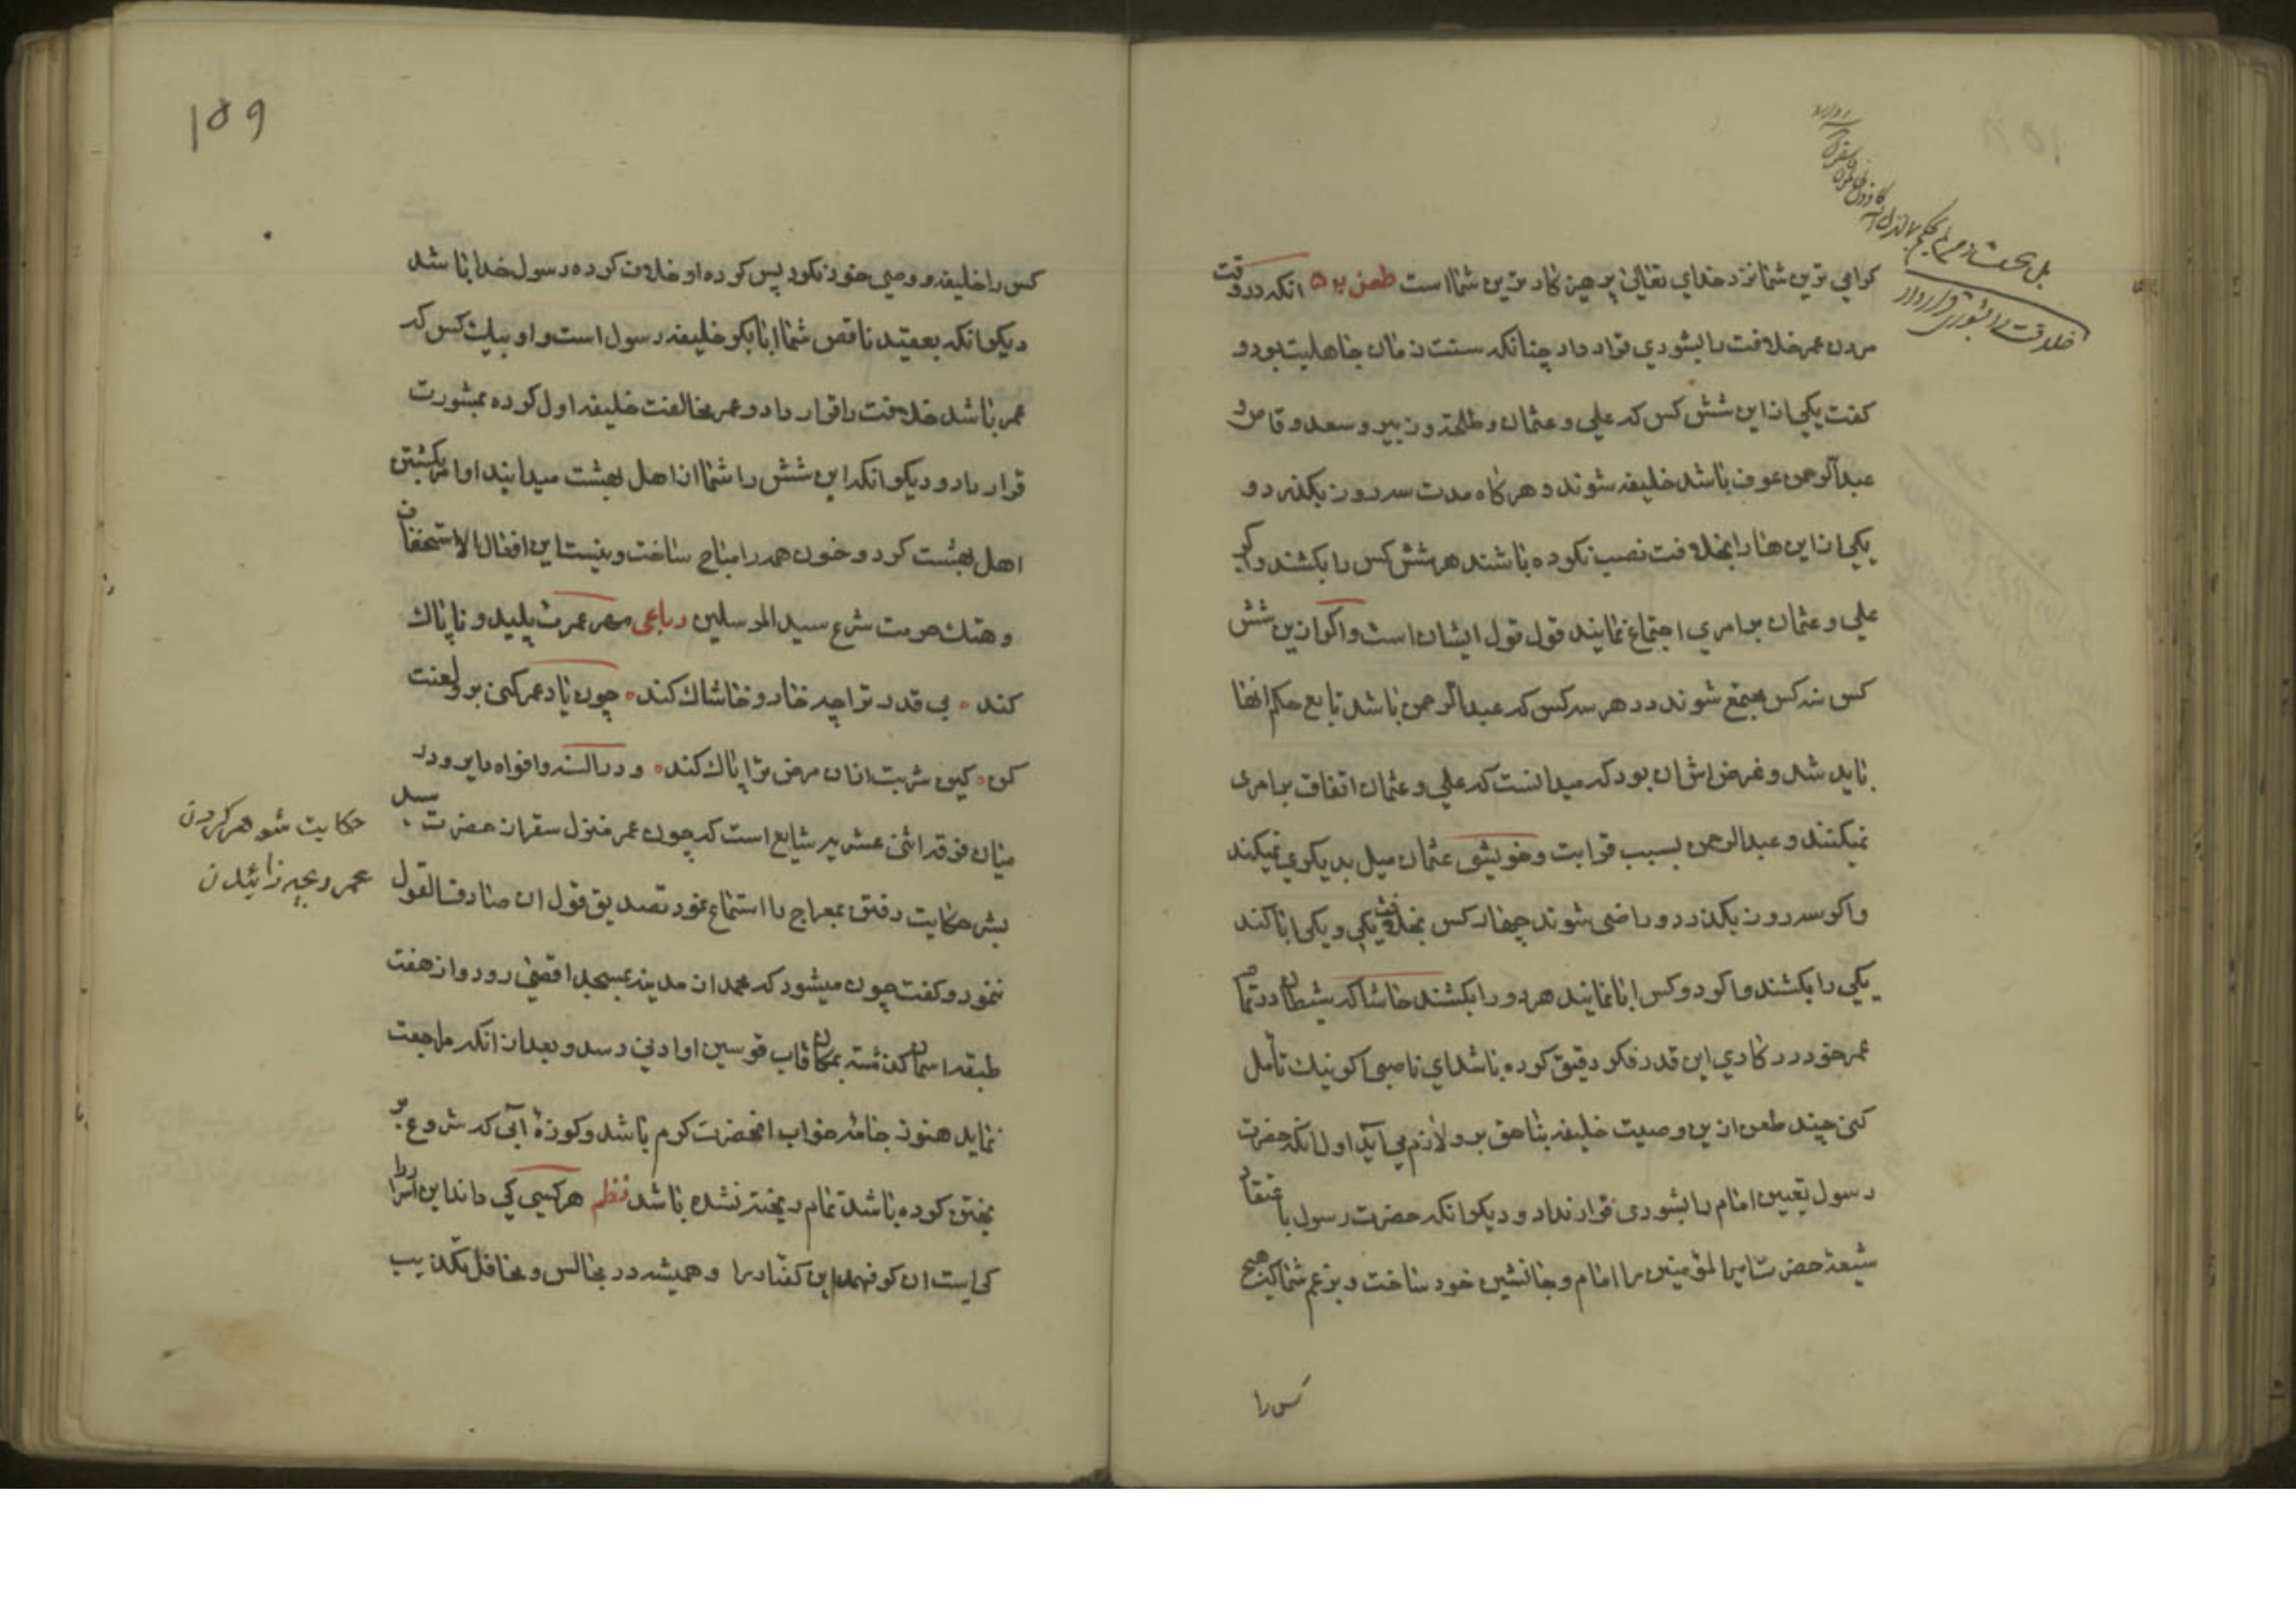 کرامی ترین شما نزد خدای تعالی پرهیزکارترین شما است طعن انکه در وقت
مردن عمر خلافت را بشوری قرار داد چنانکه سنت زمان جاهلیت بود و
کفت یکی از این شش کس که علی و عثمان و طلحه و زبیر و سعد وقاص و
عبدالرحمن عوف باشد خلیفه شوند و هرکاه مدت سه روز بکذرد و
یکی از این ها را بخلافت نصب نکرده باشند هر شش کس را بکشند و کر
علی و عثمان بر امری اجتماع نمایند قول قول ایشان است و اکر ازین شش
کس سه کس مجتمع شوند در هر سه کس که عبدالرحمن باشد تابع حکم انها
باید شد و غرضش ان بود که میدانست که علی و عثمان اتفاق بر امری
نمیکنند و عبدالرحمن بسبب قرابت و خویشی عثمان میل بدیکری نمیکند
و اکر سه روز بکذرد و راضی شوند چهار کس بخلافت یکی و یکی ابا کند
یکی را بکشند و اکر دو کس ابا نمایند هر دو را بکشند حاشا که شیطان در تمام
عمر خود در کاری این قدر فکر دقیق کرده باشد ای ناصبی اکر نیک تأمل
کنی چند طعن ازین وصیت خلیفه بناحق بر او لازم می آید اول انکه حضرت
رسول تعیین امام را بشوری قرار نداد و دیکر انکه حضرت رسول باعتقاد
شیعه حضرت امیرالمؤمنین را امام و جانشین خود ساخت و بزعم شما که هیچ
کس را
خلافت را بشوری قرار داد
159
کس را خلیفه و وصی خود نکرد پس کرده او خلاف کرده رسول خدا باشد
دیکر انکه بعقیده ناقص شما ابابکر خلیفه رسول است و او بیک کس که
عمر باشد خلافت را قرار داد و عمر مخالفت خلیفه اول کرده بمشورت
قرار داد و دیکر انکه این شش را شما از اهل بهشت میدانید او امر بکشتن
اهل بهشت کرد و خون همه را مباح ساخت و نیست این افعال الا استخفاف
و هتک حرمت شرع سید المرسلین رباعی مهر عمرت پلید و ناپاک
کند بی قدر ترا چه خار و خاشاک کند چون یاد عمر کنی بر او لعنت
کن کین شربت ازان مرض ترا پاک کند و در السنه و افواه دایر و در
میان فرقه اثنی عشریه شایع است که چون عمر منزل سقر از حضرت سید
بشر حکایت رفتن بمعراج را استماع نمود تصدیق قول ان صادق القول
ننمود و کفت چون میشود که محمد از مدینه بمسجد اقصی رود و از هفت
طبقه اسمان کذشته بمکان قاب قوسین او ادنی رسد و بعد از انکه مراجعت
نماید هنوز جامه خواب انحضرت کرم باشد و کوزه آبی که شروع بر
یختن کرده باشد تمام ریخته نشده باشد نظم هر کسی کی داند این اسرار را
کی است ان کو فهمد این کفتار را و همیشه در مجالس و محافل تکذیب
حکایت شوهر کردن
عمر و بچه زائیدن